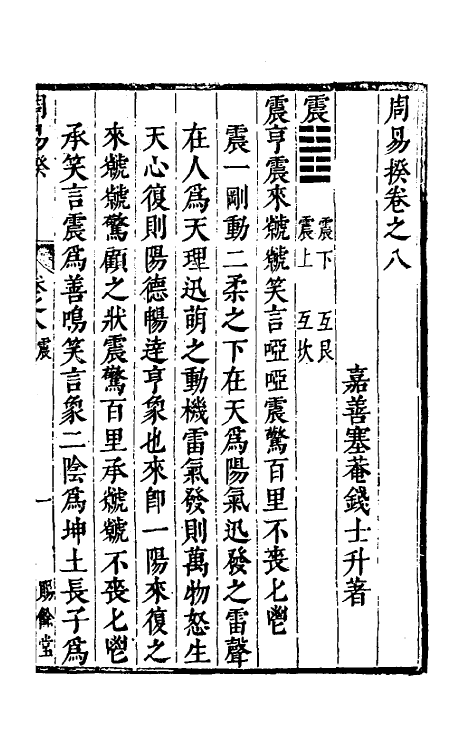 周易揆卷之八
嘉善塞菴錢士升著
震䷲ 震下 互艮
震上 互坎
震亨震來虩虩笑言啞啞震驚百里不喪匕鬯
震一剛動二柔之下在天爲陽氣迅發之雷聲
在人爲天理迅萌之動機雷氣發則萬物怒生
天心復則陽德暢達亨象也來卽一陽來復之
來虩虩驚顧之狀震驚百里承虩虩不喪匕鬯
承笑言震爲善鳴笑言象二陰爲坤土長子爲
周易揆 卷之八 震 一 賜餘堂